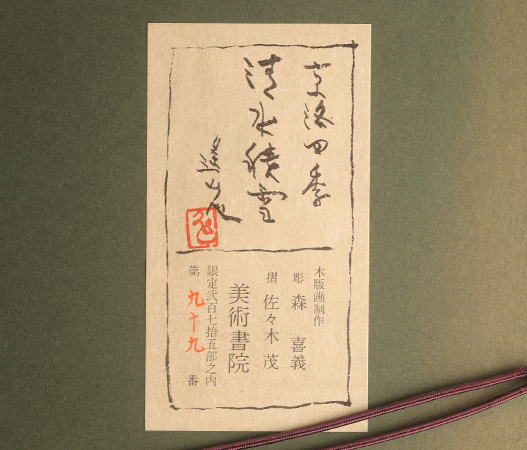 京洛四季
清水積雪
木版画制作
彫 森 喜義
摺 佐々木 茂
美術書院
限定弐百七拾五部之内
第 九十九 番